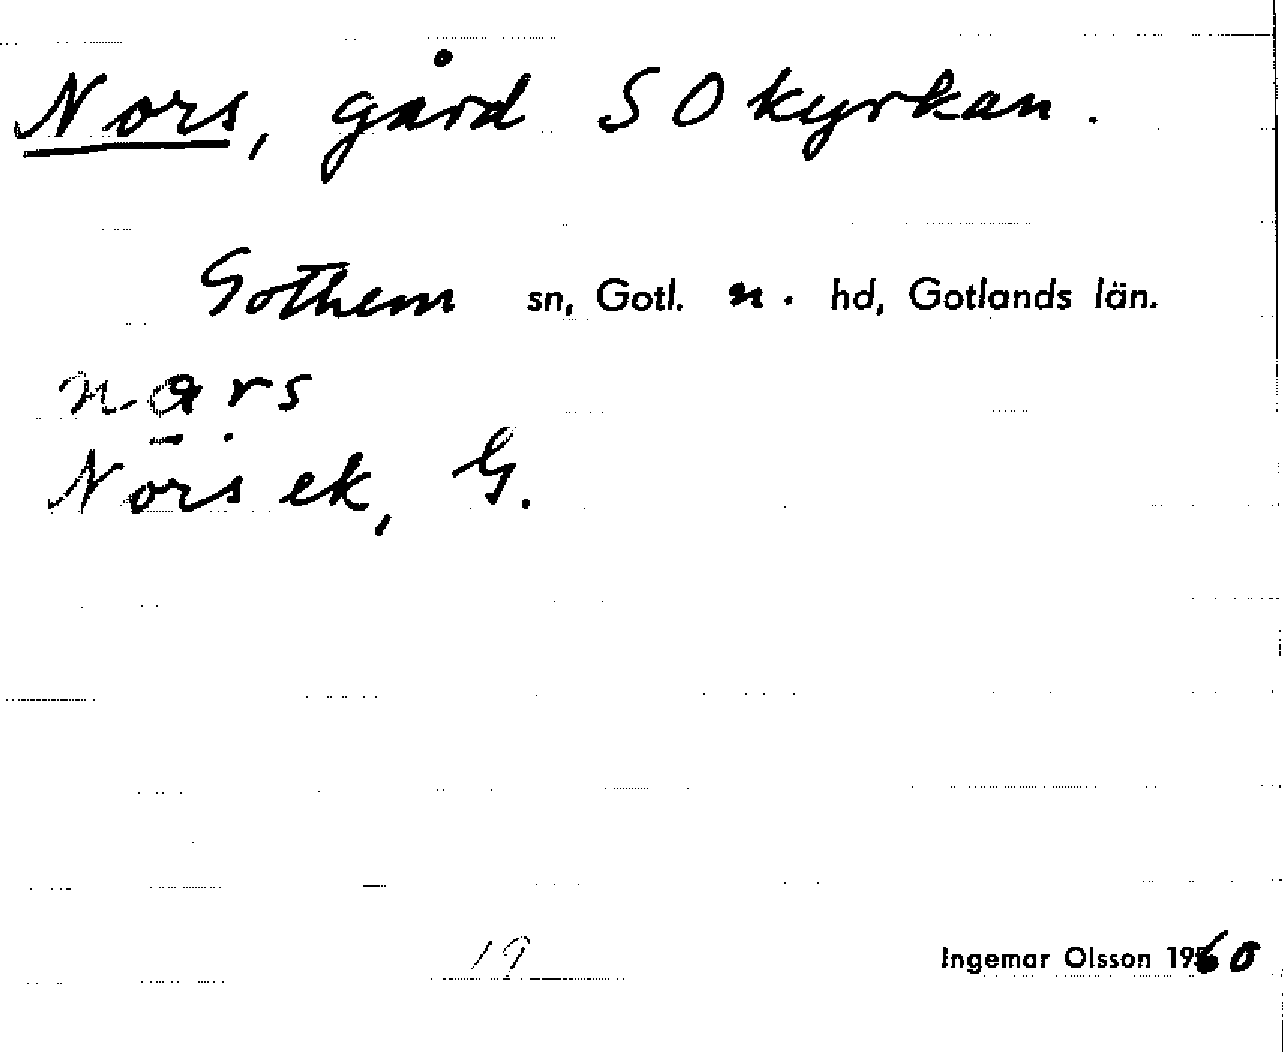 Nors, gård SO kyrkan.
Gothem sn, Gotl. n. hd, Gotlands län.
nars
Nors ek, G.
19
Ingemar Olsson 1960